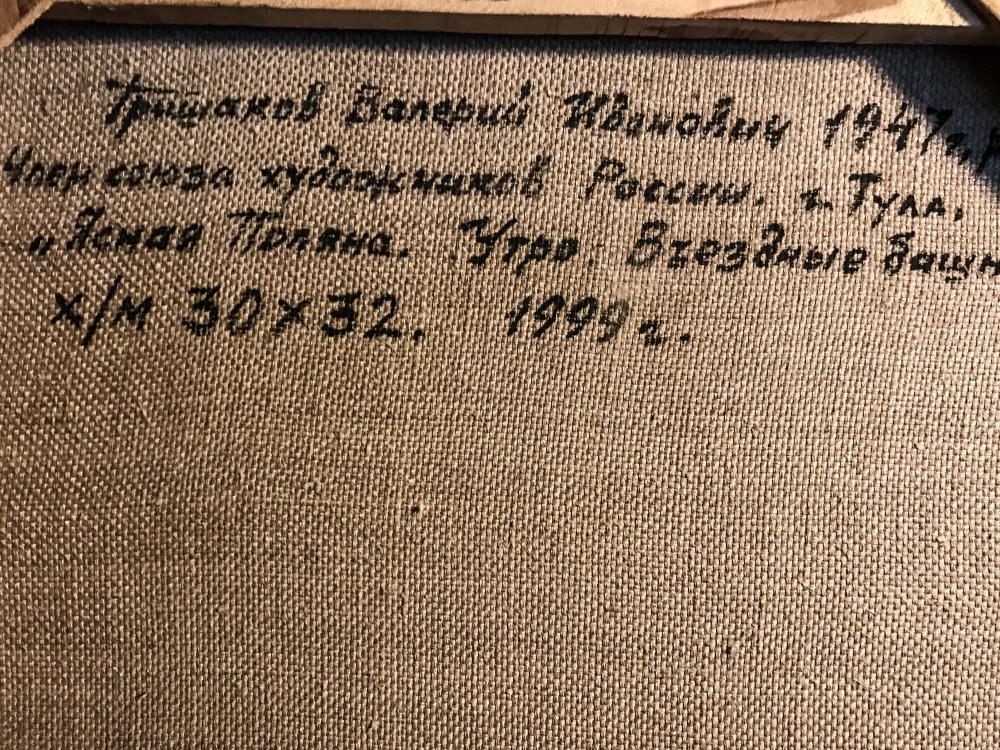 Гришаков Валерий Иванович 1947г.
Член союза художников России. г. Тула.
„Ясная Поляна. Утро. Въездные башн
х/м 30х32. 1999г.